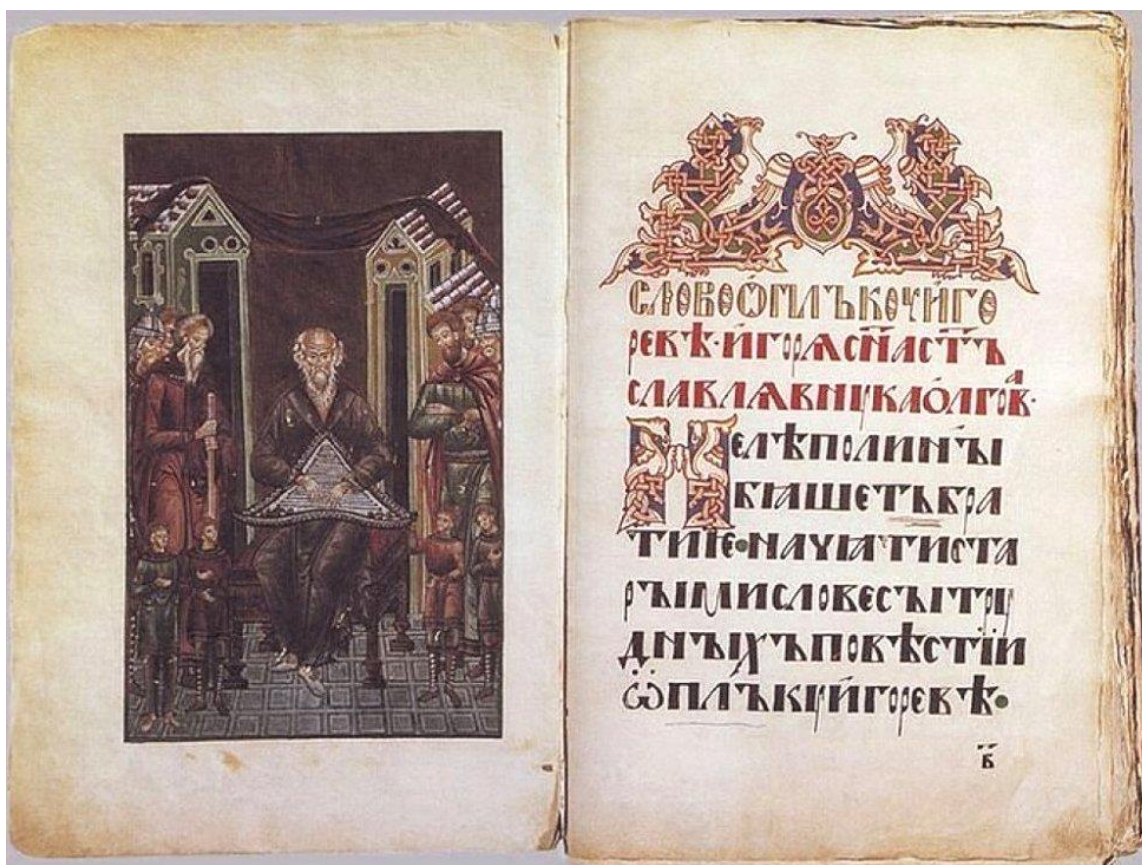 СЛОВООПЛЪКОУИГО
РЕВѢ·ИГОРѦСН҃АСТЪ
СЛАВЛѦВНꙋКАОЛГОВᲿа·
НЕЛѢПОЛИНЫ
БꙖШЕТЬБРА
ТИѤ•НАЧꙖТИСТА
РЫМИСЛОВЕСЫТРꙋ
ДНЫХЪПОВѢСТІИ
ѾПЛЪКꙋИГОРЕВѢ•
Б҃